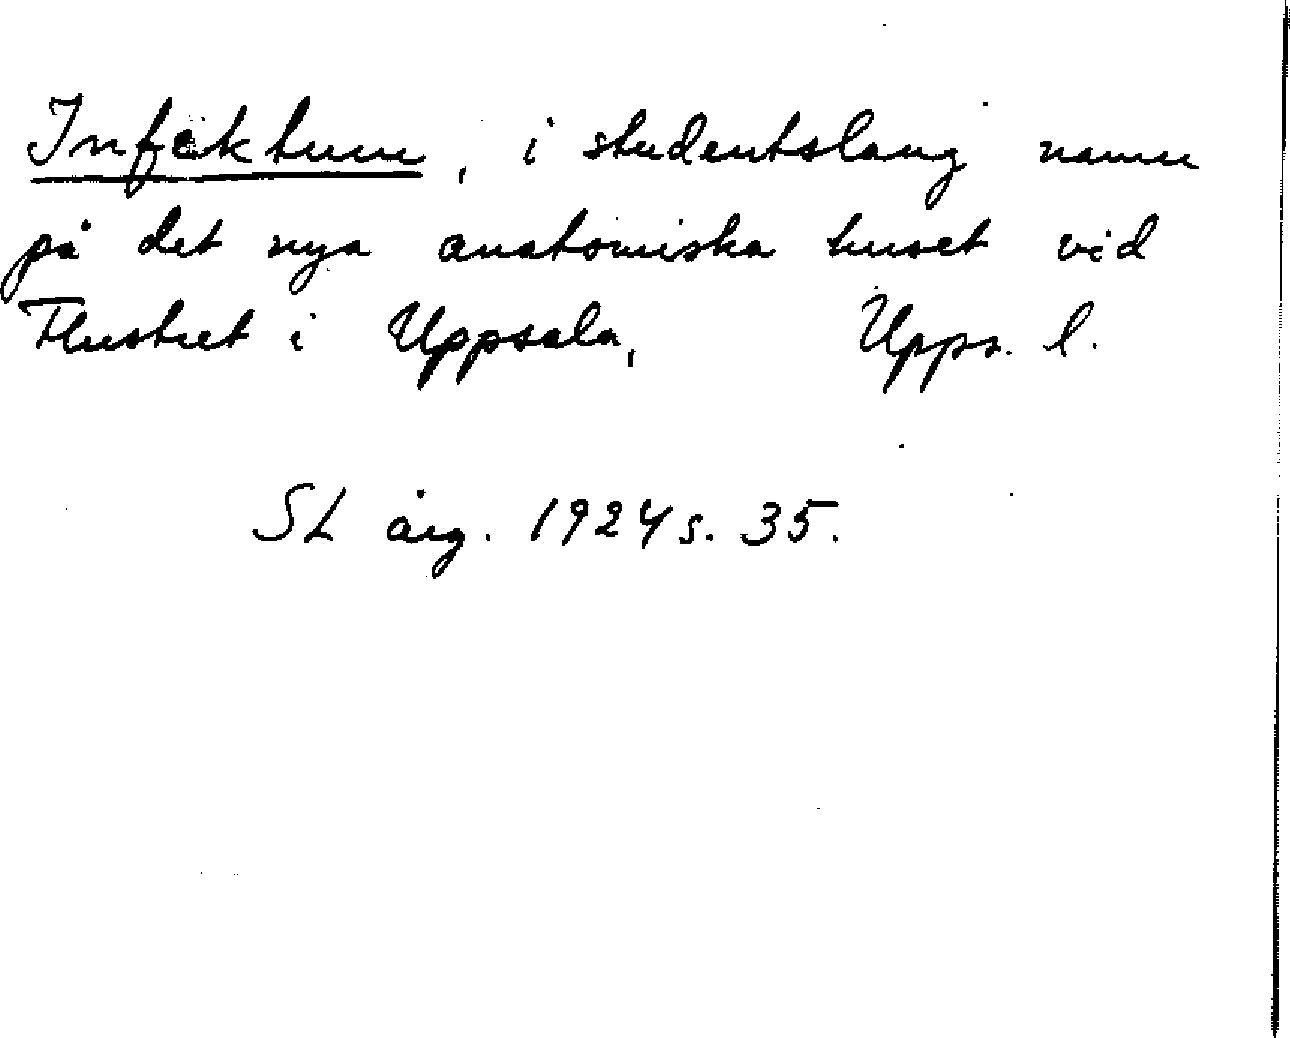 Infektum, i studentslang namn
på det nya anatomiska huset vid
Flustret i Uppsala, Upps. l.
SL årg. 1924 s. 35.